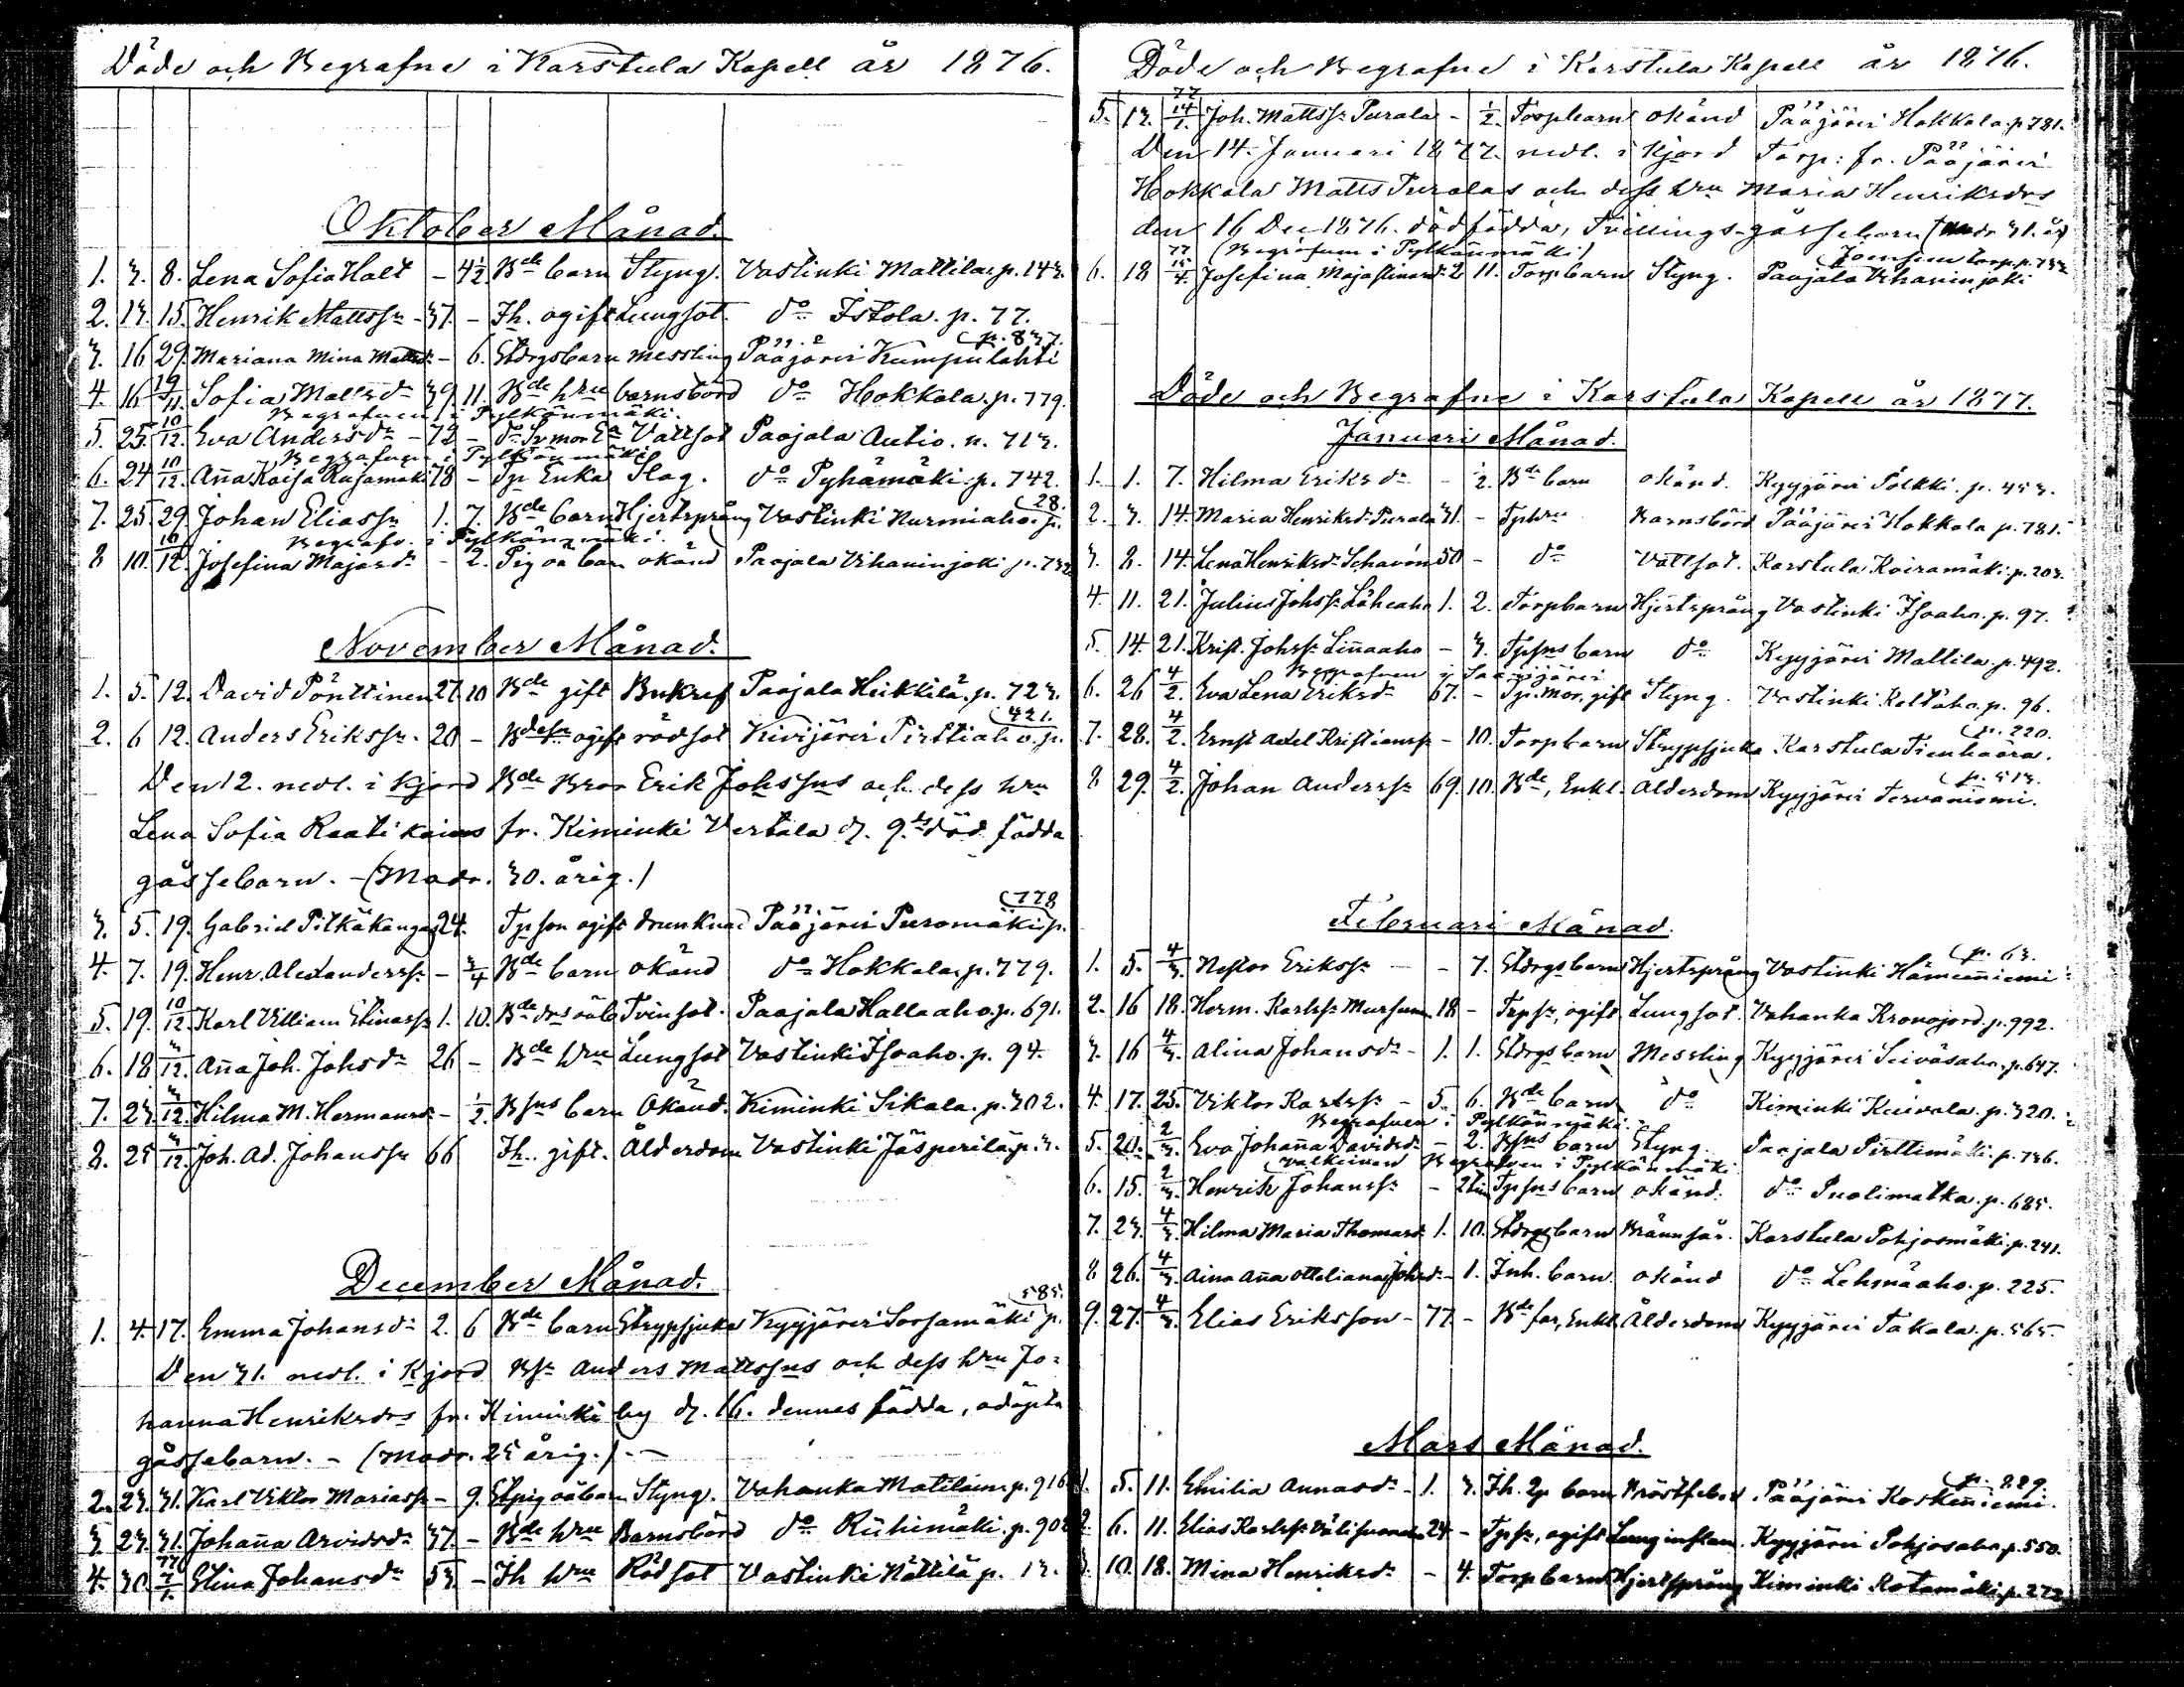 Döde och Begrafne i Karstula Kapell år 1876.
Oktober Månad.
1. 3. 8. Lena Sofia Halt - 4½ Bde barn Styng. Vastinki Mattila p. 143.
2. 13. 15. Henrik Mattssn - 37. - Ih. ogift Lungsot do Istola. p. 77.
p. 837.
3. 16 29. Mariana Mina Mattsdr - 6. Stdrgsbarn messling Pääjärvi Kumpulahti
4. 16 19/11. Sofia Mattsdr 39. 11. Bde hru barnsbörd do Hokkala. p. 779.
Begrafven i Pylkönmäki.
5. 25. 10/12. Eva Andersdr - 72 - do Sv mor Ea Vattsot Paajala Autio. n. 713.
Begrafven i Pylkönmäki
6. 24 10/12. Anna Kaisa Rusamäki 78 - Tp Enka Slag. do Pyhämäki p. 742.
28.
7. 25. 29. Johan Eliassn 1. 7. Bde barn Hjertsprång Vastinki Nurmiaho. p.
Begrafv. i Pylkönmäki.
8 10. 10/12. Josefina Majasdr - 2. Pig oä barn okänd Paajala Vihaninjoki p. 732
November Månad.
1. 5. 12. David Pönttinen 27. 10 Bde gift Bukref Paajala Heikkilä. p. 723.
421.
2. 6 12. Anders Erikssn. 20 - Bdesn ogift rödsot Kivijärvi Pirttiaho. p.
Den 12. nedl. i kjord Bde Bror Erik Johssns och dess hru
Lena Sofia Raatikains fr. Kiminki Vertala d. 9. ds död födda
gossebarn. - (Modr. 30. årig.)
778
3. 5. 19. Gabriel Pitkäkangas 24. Tpson ogift drunknad Pääjärvi Puromäki p.
4. 7. 19. Henr. Alexanderssn - ¾ Bde barn okänd do Hokkala p. 779.
5. 19. 10/12 Karl Villiam Stinassn 1. 10. Bde drs oäb Tvinsot. Paajala Hallaaho. p. 691.
6. 18 3/12. Anna Joh. Johsdr 26 - Bde hru Lungsot Vastinki Isoaho. p. 94.
7. 23 3/12. Hilma M. Hermansdr - ½ Bsns barn Okänd. Kiminki Sikala. p. 302.
8. 25 3/12. Joh. Ad. Johanssn 66 Ih. gift. Ålderdom Vastinki Jäsperilä p. 3.
December Månad.
585.
1. 4. 17. Emma Johansdr 2. 6 Bde barn Strypsjuka Kyyjärvi Sorsamäki p.
Den 31. nedl. i kjord Bsn Anders Mattssns och dess hru Jo-
hanna Henriksdrs fr. Kiminki by d. 16. dennes födda, odöpta
gossebarn. - (Modr. 25 årig.) -
2. 23. 31. Karl Viktor Mariassn - 9. Stpig oä barn Styng. Vahanka Matilainen p. 916
3 23. 31. Johanna Arvidsdr 37. - Bde hru Barnsbörd do Riihimäki. p. 902
4. 30. 77 7/1. Stina Johansdr 53. - Ih hru Rödsot Vastinki Mattila p. 13.
Döde och Begrafne i Karstula Kapell år 1876.
5. 13. 77 14/1. Joh. Mattssn Purala - ½. Torpbarn okänd Pääjärvi Hokkala p 781.
Den 14. Januari 1877. nedl. i kjord Torp: fr. Pääjärvi
Hokkala Matts Puralas och dess hru Maria Henriksdrs
den 16 Dec 1876. dödfödda, Tvillings-gossebarn (Modr 31. år)
(Begrafven i Pylkönmäki)
6. 18 77 15/4. Josefina Majastinasdr 2 11. Torpbarn Styng. Paajala Vihaninjoki
Döde och Begrafne i Karstula Kapell år 1877.
Januari Månad.
1. 1. 7. Hilma Eriksdr - ½. Bde barn okänd. Kyyjärvi Pölkki. p. 453.
2. 3. 14. Maria Henriksdr Purala 31. - Tphru Barnsbörd Pääjärvi Hokkala p. 781.
3. 8. 14. Lena Henriksdr Schavón 50 - do Vattsot. Karstula Koiramäki. p. 203.
4. 11. 21. Julius Johssn Läheaho 1. 2. Torpbarn Hjertsprång Vastinki Isoaho. p. 97.
5. 14. 21. Krist. Johssn Linnaaho - 3. Tpsns barn do Kyyjärvi Mattila. p. 492.
Begrafven i Saarijärvi
6. 26 4/2. Eva Lena Eriksdr 67. - Tp. mor, gift Styng. Vastinki Keltäho. p. 96.
p. 220.
7. 28. 4/2. Ernst Axel Kristianssn - 10. Torpbarn Strypsjuka Karstula Tienhaara.
p. 513.
8 29. 4/2. Johan Anderssn 69. 10. Bde, Enkl. Ålderdom Kyyjärvi Tervaniemi.
Februari Månad.
p. 63.
1. 5. 4/3. Nestor Erikssn - 7. Stdrgsbarn Hjertsprång Vastinki Hämeenniemi
2. 16 18. Herm. Karlssn Mursunen 18 - Tpsn, ogift Lungsot. Vahanka Kronojord. p. 992.
3. 16 4/3. Alina Johansdr - 1. 1. Stdrgsbarn Messling Kyyjärvi Seiväsaho. p. 647.
4. 17. 25. Viktor Karlssn - 5. 6. Bde barn do Kiminki Kuivala. p. 320.
Begrafven i Pylkönmäki.
5. 20. 2/3. Eva Johanna Davidsdr - 2. Bsns barn Styng. Paajala Pirttimäki. p. 736.
Valkeinen Begrafven i Pylkönmäki
6. 15. 2/3. Henrik Johanssn - 2tim Tpsns barn okänd. do Puolimatka. p. 685.
7. 23. 4/3. Hilma Maria Thomasdr 1. 10. Stdrgsbarn Brännsår. Karstula Pohjosmäki. p. 241.
8 26. 4/3. Aina Anna Otteliana Johsdr - 1. Inh. barn. okänd do Lehmäaho. p. 225.
9. 27. 4/3. Elias Eriksson - 77. - Bde far, Enkl. Ålderdom Kyyjärvi Takala. p. 565.
Mars Månad.
p. 829.
1. 5. 11. Emilia Annasdr - 1. 3. Ih. barn Bröstfeber. Pääjärvi Koskenniemi.
2. 6. 11. Elias Karlssn 24. - Tpsn, ogift Lunginflam. Kyyjärvi Pohjosaho p. 550.
3. 10. 18. Mina Henriksdr - 4. Torpbarn Hjertsprång Kiminki Rotamäki. p. 272